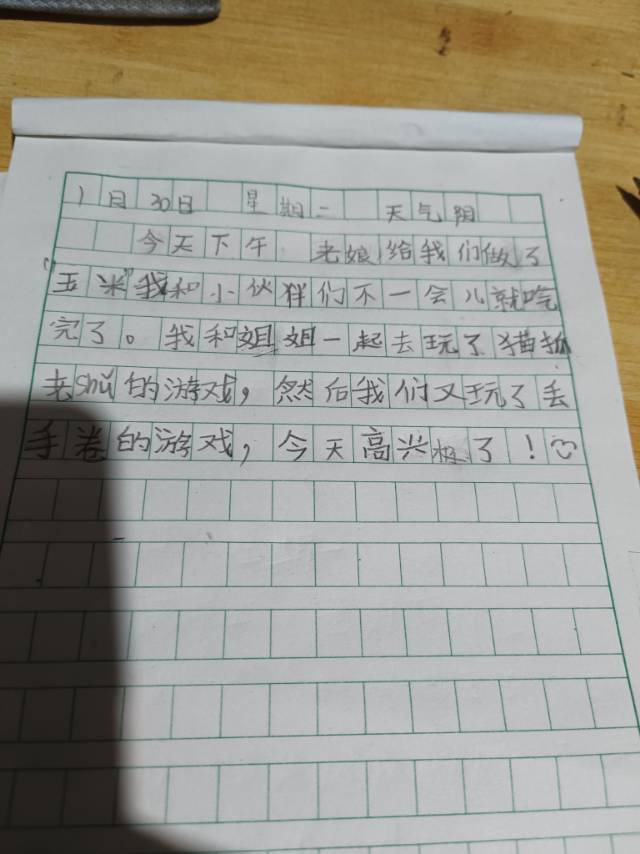 1月30日 星期二 天气阴
今天下午 老娘给我们做了
"玉米"我和小伙伴们不一会儿就吃
完了。我和姐姐一起去玩了猫抓
老shǔ的游戏，然后我们又玩了丢
手卷的游戏，今天高兴极了！